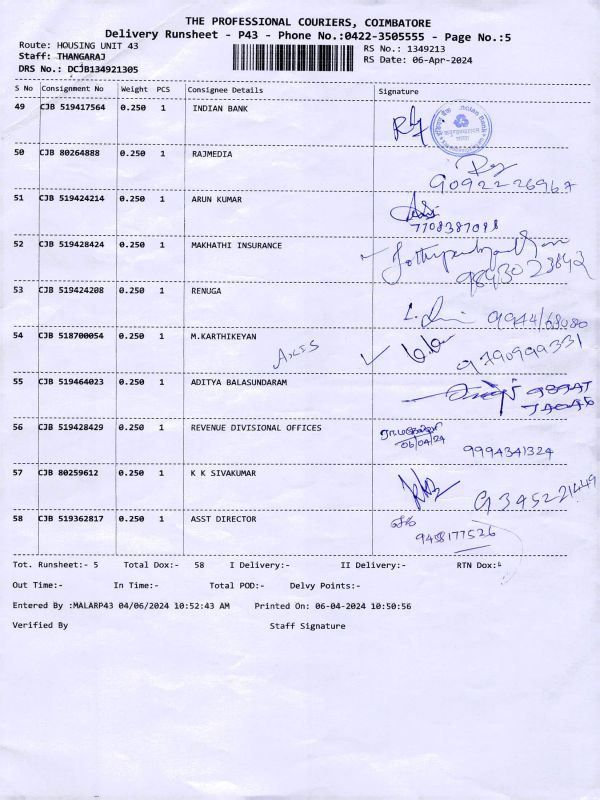 THE PROFESSIONAL COURIERS, COIMBATORE
Delivery Runsheet - P43 - Phone No.:0422-3505555 - Page No.:5
Route: HOUSING UNIT 43
RS No.: 1349213
Staff: THANGARAJ
RS Date: 06-Apr-2024
DRS No.: DCJB134921305
S No Consignment No Weight PCS Consignee Details Signature
49 CJB 519417564 0.250 1 INDIAN BANK
50 CJB 80264888 0.250 1 RAJMEDIA
9092226967
51 CJB 519424214 0.250 1 ARUN KUMAR
7708387098
52 CJB 519428424 0.250 1 MAKHATHI INSURANCE
9843023842
53 CJB 519424208 0.250 1 RENUGA
9944168080
54 CJB 518700054 0.250 1 M.KARTHIKEYAN
AXIS
9790999331
55 CJB 519464023 0.250 1 ADITYA BALASUNDARAM
56 CJB 519428429 0.250 1 REVENUE DIVISIONAL OFFICES
06/04/24
9994341324
57 CJB 80259612 0.250 1 K K SIVAKUMAR
9345221449
58 CJB 519362817 0.250 1 ASST DIRECTOR
9458177526
Tot. Runsheet:- 5 Total Dox:- 58 I Delivery:- II Delivery:- RTN Dox:-
Out Time:- In Time:- Total POD:- Delvy Points:-
Entered By :MALARP43 04/06/2024 10:52:43 AM Printed On: 06-04-2024 10:50:56
Verified By Staff Signature